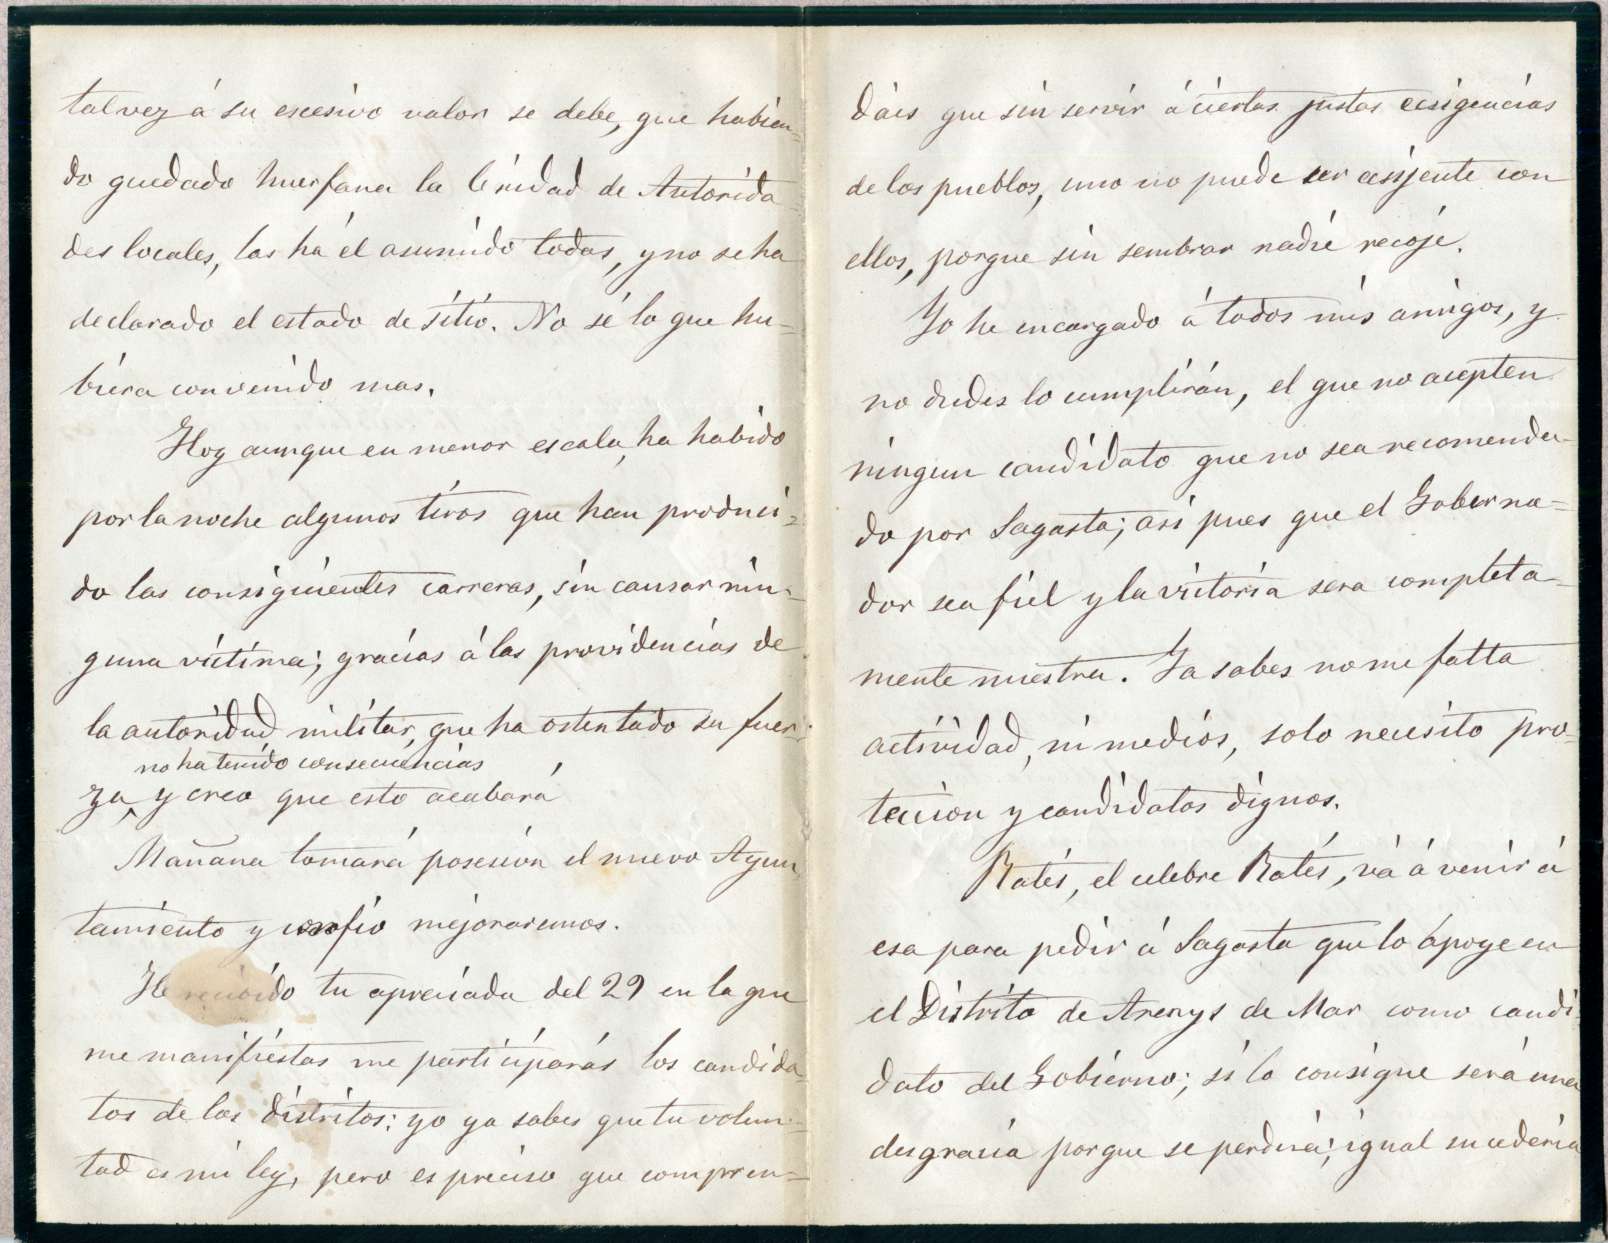 talvez á su escesivo valor se debe, que habien=
do quedado huerfana la Ciudad de Autorida=
des locales, las há él asumido todas, y no se ha
declarado el estado de sitio. No sé lo que hu=
biera convenido mas.
Hoy aunque en menor escala, ha habido
por la noche algunos tiros que han produci=
do las consiguientes carreras, sin causar nin=
guna victima; gracias á las providencias de
la autoridad militar, que ha ostentado su fuer=
no ha tenido consecuencias
za, y creo que esto acabará
Mañana tomará posesión el nuevo Ayun
tamiento y confio mejoraremos.
He recibido tu apreciada del 29 en la que
me manifiestas me participarás los candida=
tos de los distritos: yo ya sabes que tu volun=
tad es mi ley, pero es preciso que compren=
dáis que sin servir á ciertas justas ecsigencias
de los pueblos, uno no puede ser ecsijente con
ellos, porque sin sembrar nadie recoje.
Yo he encargado á todos mis amigos, y
no dudes lo cumplirán, el que no acepten
ningun candidato que no sea recomenda=
do por Sagasta; asi pues que el Goberna=
dor sea fiel y la victoria sera completa=
mente nuestra. Ya sabes no me falta
actividad, ni medios, solo necesito pro=
teccion y candidatos dignos.
Ratés, el celebre Ratés, vá á venir á
esa para pedir á Sagasta que lo apoye en
el Distrito de Arenys de Mar como candi
dato del Gobierno; si lo consigue será una
desgracia porque se perderá; igual sucederia